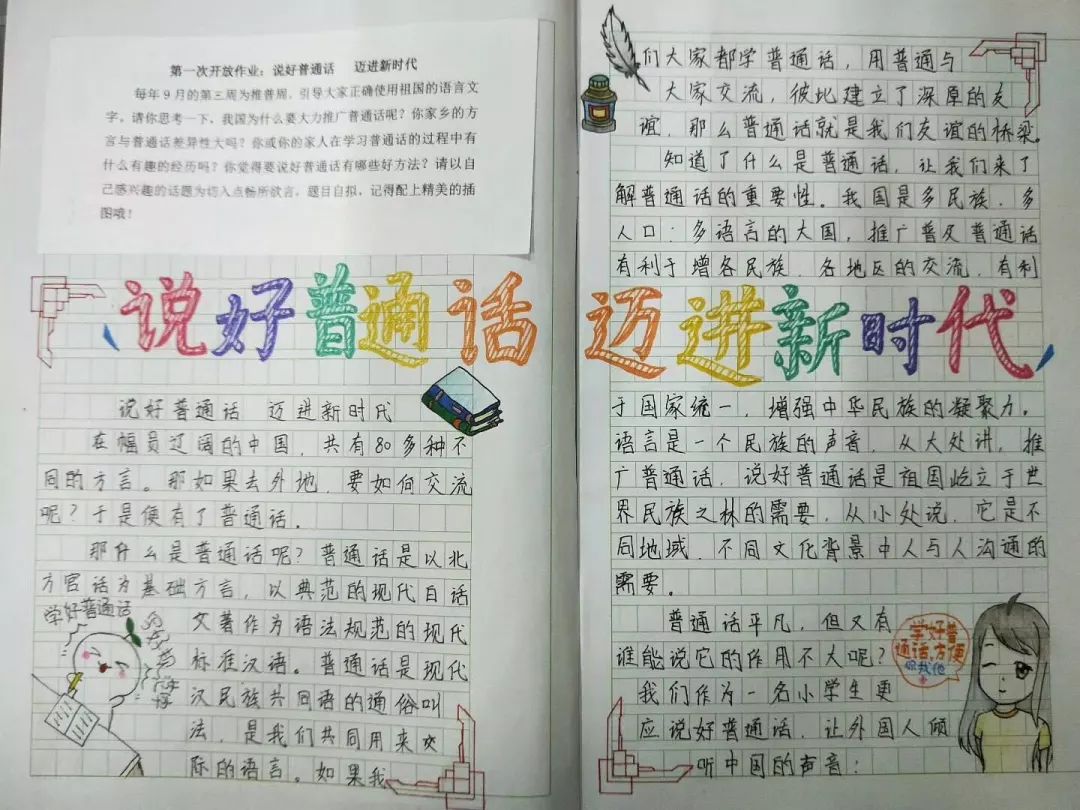 第一次开放作业：说好普通话 迈进新时代
每年9月的第三周为推普周，引导大家正确使用祖国的语言文
字，请你思考一下，我国为什么要大力推广普通话呢？你家乡的方
言与普通话差异性大吗？你或你的家人在学习普通话的过程中有
什么有趣的经历吗？你觉得要说好普通话有哪些好方法？请以自
己感兴趣的话题为切入点畅所欲言，题目自拟，记得配上精美的插
图哦！
说好普通话 迈进新时代
说好普通话 迈进新时代
在幅员辽阔的中国，共有80多种不
同的方言。那如果去外地，要如何交流
呢？于是便有了普通话。
那什么是普通话呢？普通话是以北
方官话为基础方言，以典范的现代白话
文著作为语法规范的现代
标准汉语。普通话是现代
汉民族共同语的通俗叫
法，是我们共同用来交
际的语言。如果我
学好普通话
们大家都学普通话，用普通与
大家交流，彼此建立了深厚的友
谊，那么普通话就是我们友谊的桥梁。
知道了什么是普通话，让我们来了
解普通话的重要性。我国是多民族、多
人口、多语言的大国，推广普及普通话
有利于增各民族、各地区的交流，有利
于国家统一，增强中华民族的凝聚力。
语言是一个民族的声音，从大处讲，推
广普通话，说好普通话是祖国屹立于世
界民族之林的需要，从小处说，它是不
同地域、不同文化背景中人与人沟通的
需要。
普通话平凡，但又有
谁能说它的作用不大呢？
我们作为一名小学生更
应说好普通话，让外国人倾
听中国的声音！
学好普
通话,方便
你我他